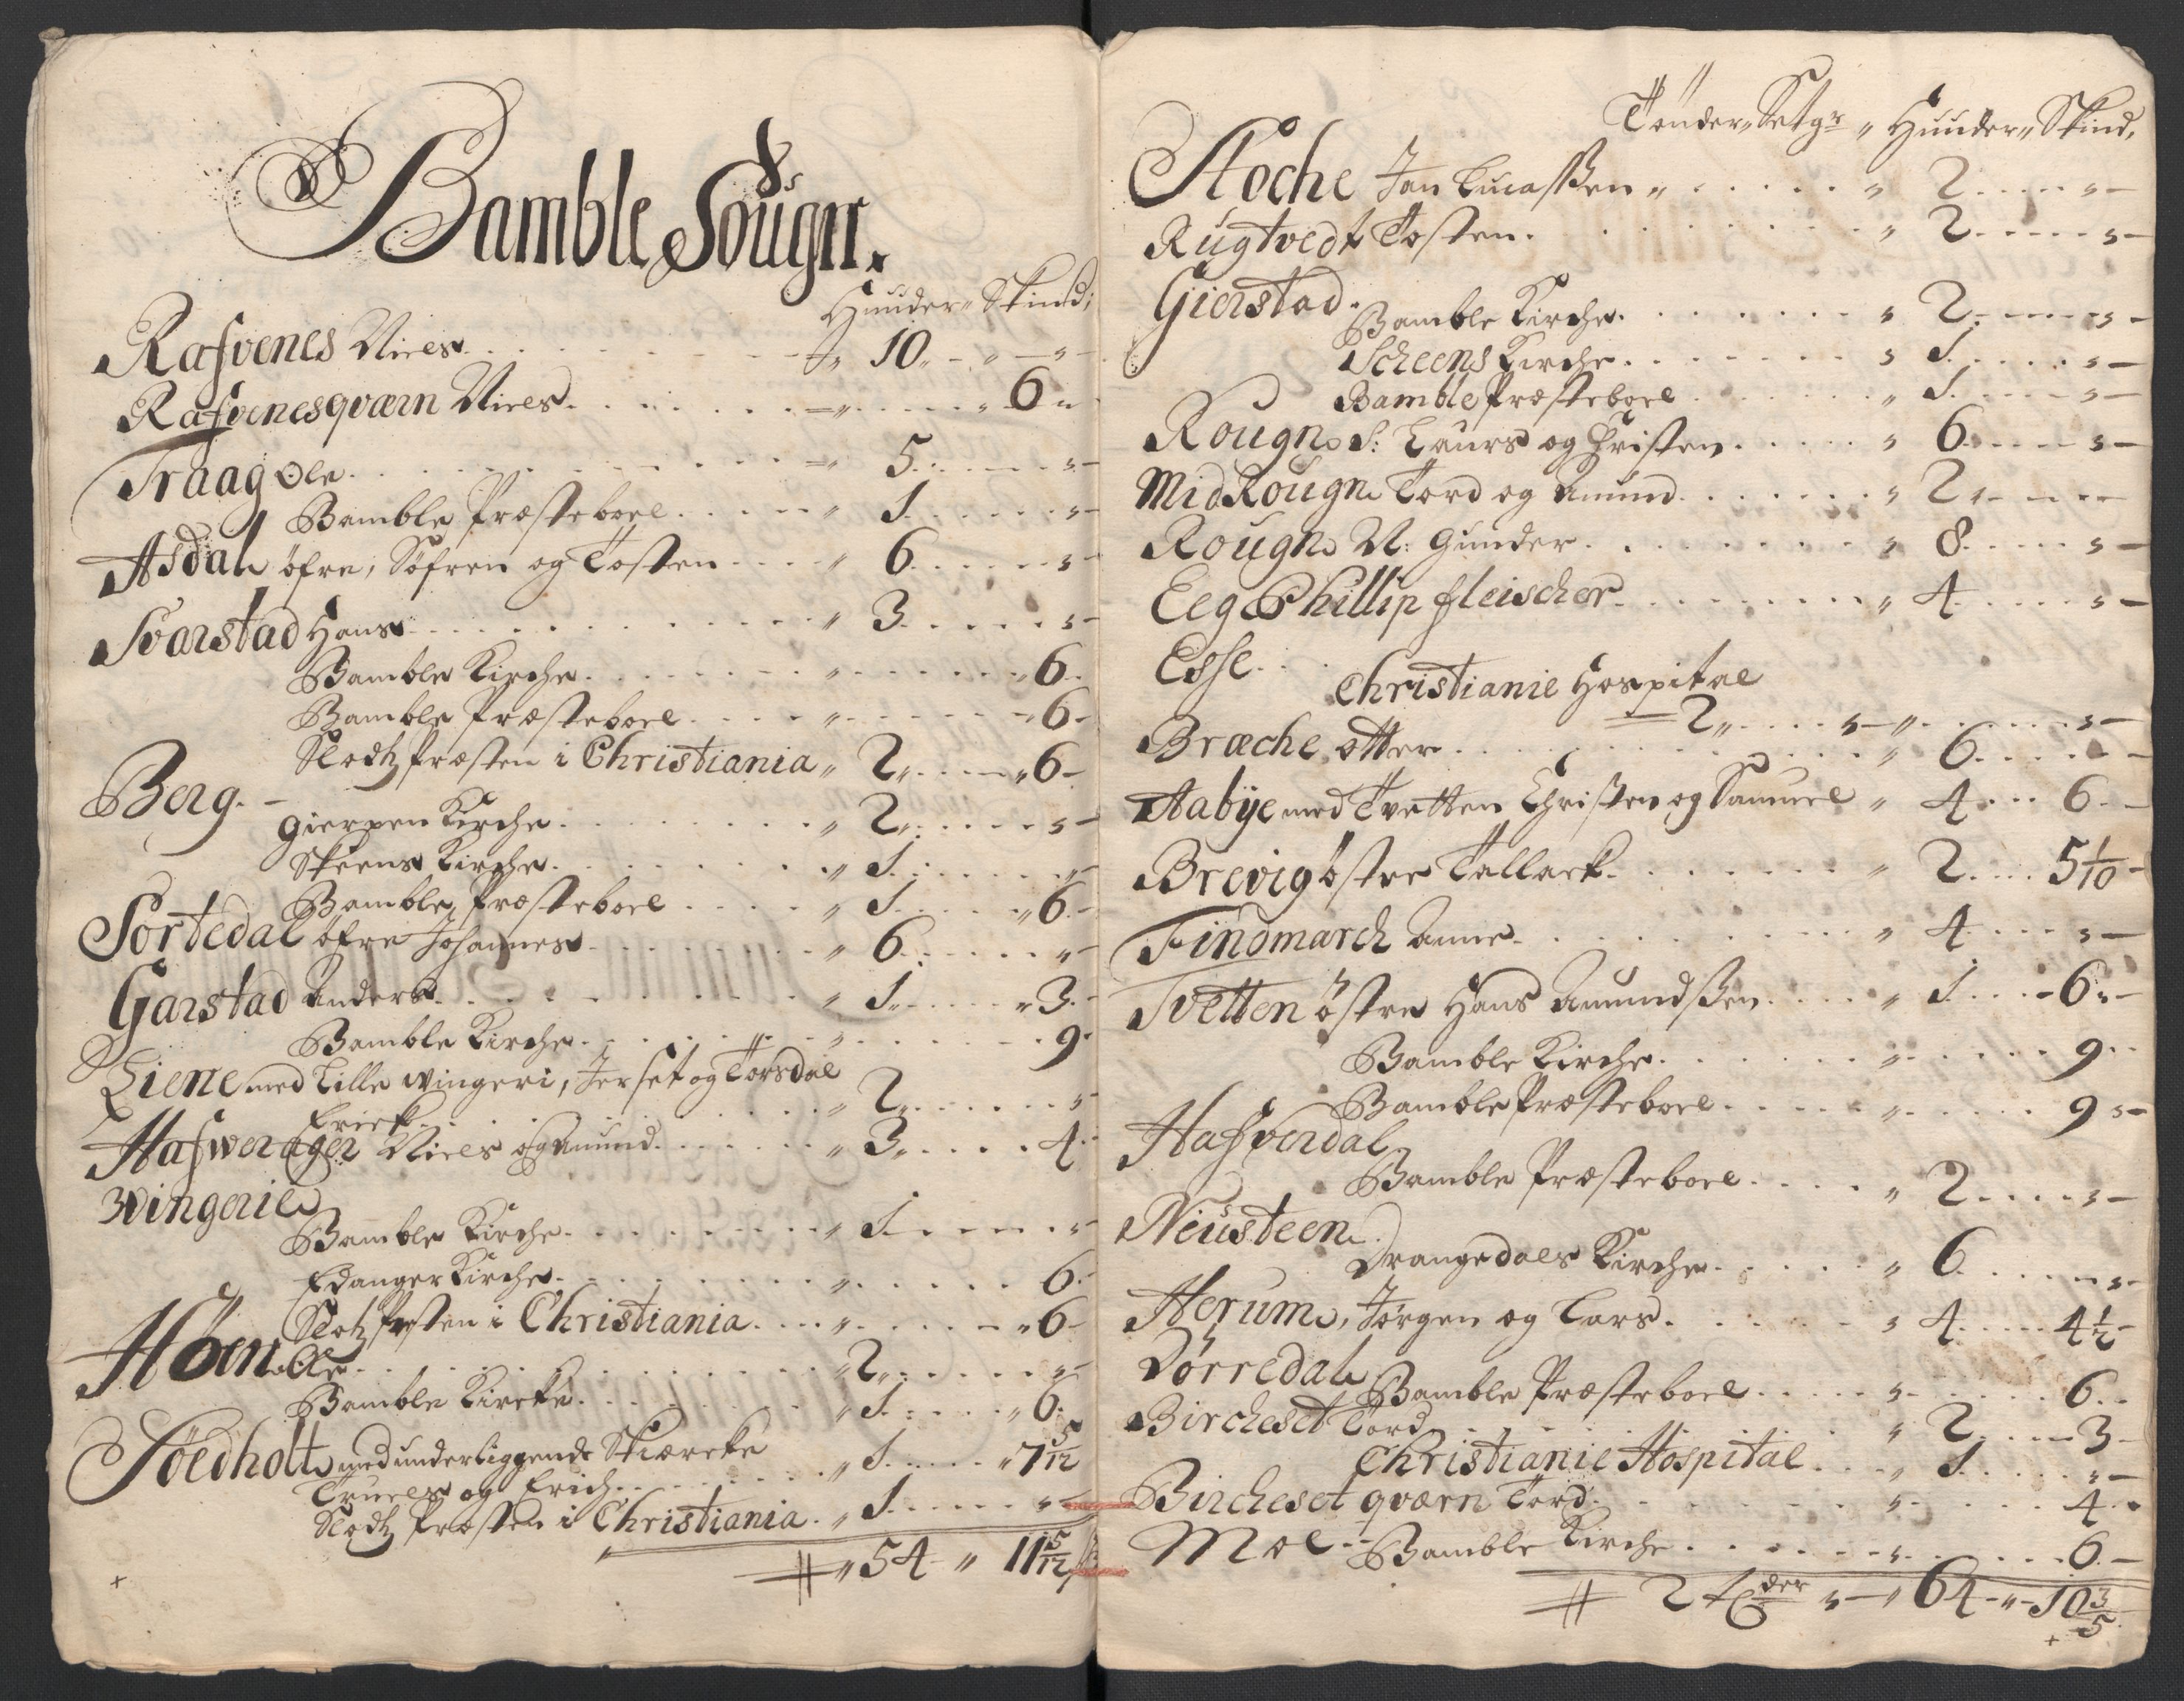 Bamble Sougn.
Huuder„ Skind,
Rafvenes Niels „ 10 „
Rafvenesqværn Niels „ 6
Traag Ole „ 5 „
Bamble Præsteboel „ 1 „
Asdal öfre, Söfren og Tosten „ 6 „
Svarstad Hans „ 3 „
Bamble Kirche „ 6
Bamble Præsteboel „ 6
Berg. Slodtz Præsten i Christiania „ 2 „ 6
Gierpen Kirche „ 2 „
Skeens Kirche „ 1 „
Bamble Præsteboel „ 1 „ 6
Sortedal öfre Johannes „ 6 „
Garstad Anders „ 1 „ 3
Bamble Kirche „ 9
Liene med Lille Wingeri, Jerset og Torsdal
Erick „ 2 „
Hafwerager Niels og Amund „ 3 „ 4
Wingerie
Bamble Kirche „ 1 „
Edanger Kirche „ 6
Slotz Præsten i Christiania „ 6
Höen Ole „ 2 „
Bamble Kircke „ 1 „ 6
Söedholt med underliggende Skiærcke
Truels og Erich „ 1 „ 7 5/12
Slodtz Præsten i Christiania „ 1 „
„ 54 „ 11 5/12
Tönder„ Setgr „ Huuder„ Skind,
Stoche Jan Lucassßen „ 2 „
Rugtvedt Tosten „ 2 „
Gierstad
Bamble Kirche „ 2 „
Scheens Kirche „ 1 „
Bamble Præsteboel „ 1 „
Rougn S: Laurs og Christen „ 6 „
Mid Rougn Tord og Amund „ 2 „
Rougn N: Gunder „ 8 „
Eeg Phillip fleischer „ 4 „
Esse
Christianie Hospital
2 „ „ „
Bræche otter „ 6
Aabÿe med Tvetten Christen og Samuel „ 4 6
Brevig östre Tallack „ 2 5 1/10
Findmarch Anne „ 4 „
Tvetten östre Hans Amundßen „ 1 6
Bamble Kirche „ 9
Bamble Præsteboel „ 9
Hafverdal
Bamble Præsteboel „ 2 „
Neüsteen
Drangedals Kirche „ 6 „
Herum, Jörgen og Lars „ 4 4 1/2
Dörredal Bamble Præsteboel „ 6
Bircheset Tord „ 2 3
Christianie Hospital „ 1 „
Bircheset qværn Tord „ 4
Moe Bamble Kirche „ 6
2 tder „ „ 64 „ 10 3/5